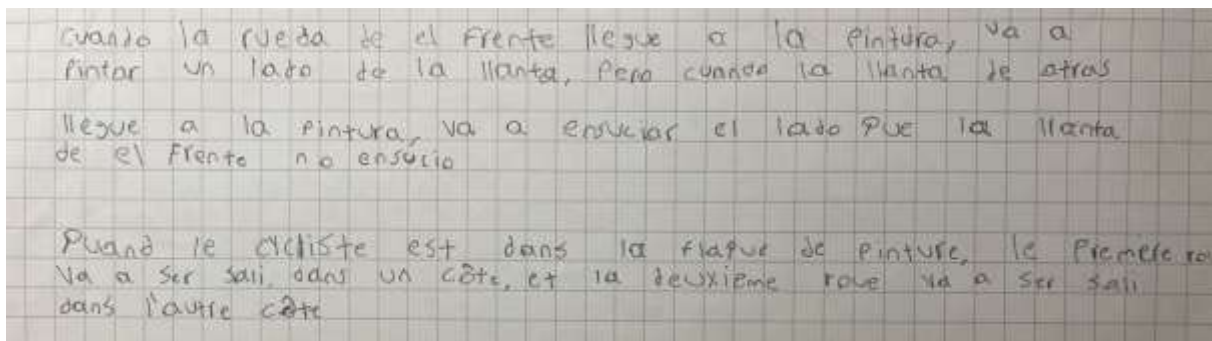 cuando la rueda de el frente llegue a la pintura, va a
pintar un lado de la llanta, pero cuando la llanta de atras
llegue a la pintura, va a ensuciar el lado que la llanta
de el frente no ensucio
Quand le cycliste est dans la flaque de pinture, le premere ro
va a ser sali dans un côte, et la deuxieme roue va a ser sali
dans l'autre côte